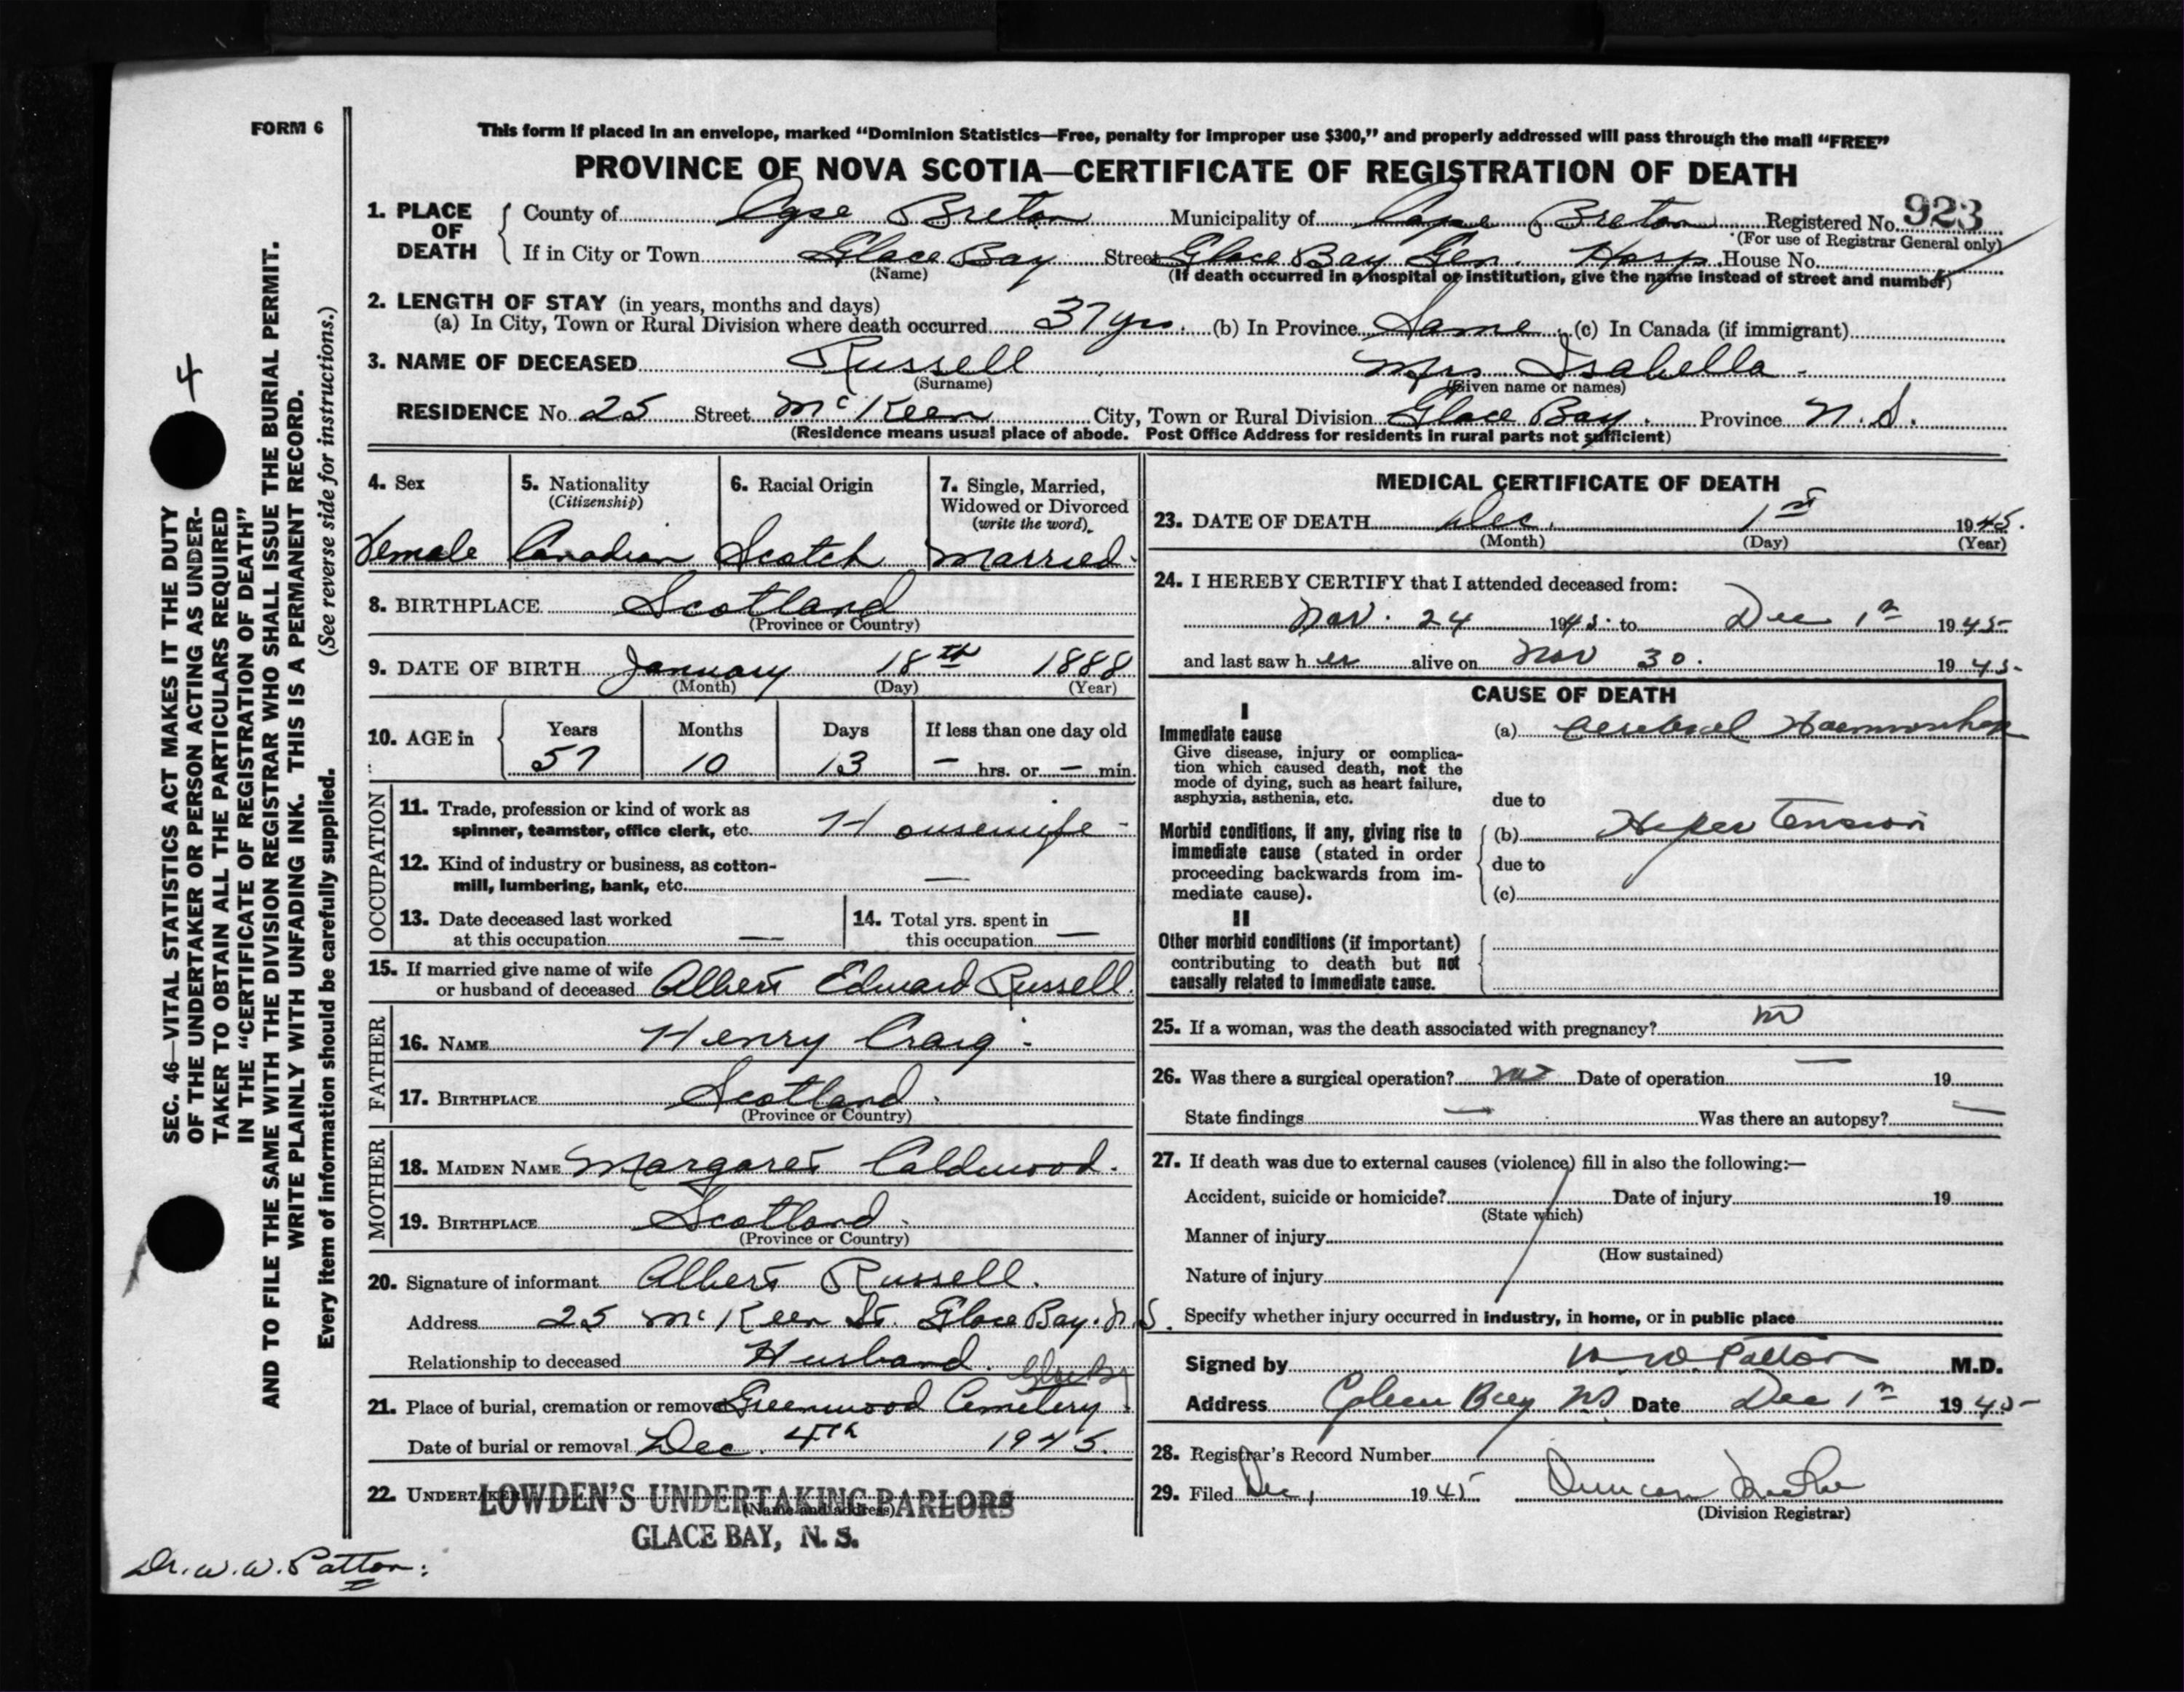 FORM 6
This form if placed in an envelope, marked “Dominion Statistics—Free, penalty for improper use $300,” and properly addressed will pass through the mail “FREE”
PROVINCE OF NOVA SCOTIA—CERTIFICATE OF REGISTRATION OF DEATH
1. PLACE OF DEATH County of Cape Breton Municipality of Cape Breton Registered No. 923
(For use of Registrar General only)
If in City or Town Glace Bay Street Glace Bay Gen. Hosp. House No.
(Name) (If death occurred in a hospital or institution, give the name instead of street and number)
2. LENGTH OF STAY (in years, months and days)
(a) In City, Town or Rural Division where death occurred 37 yrs. (b) In Province Same (c) In Canada (if immigrant)
3. NAME OF DECEASED Russell Mrs Isabella
(Surname) (Given name or names)
RESIDENCE No. 25 Street McKeen City, Town or Rural Division Glace Bay. Province N.S.
(Residence means usual place of abode. Post Office Address for residents in rural parts not sufficient)
4. Sex 5. Nationality (Citizenship) 6. Racial Origin 7. Single, Married, Widowed or Divorced (write the word)
Female Canadian Scotch Married
8. BIRTHPLACE Scotland
(Province or Country)
9. DATE OF BIRTH January 18th 1888
(Month) (Day) (Year)
10. AGE in Years Months Days If less than one day old
57 10 13 – hrs. or – min.
OCCUPATION
11. Trade, profession or kind of work as
spinner, teamster, office clerk, etc. Housewife -
12. Kind of industry or business, as cotton-
mill, lumbering, bank, etc. —
13. Date deceased last worked
at this occupation —
14. Total yrs. spent in
this occupation —
15. If married give name of wife
or husband of deceased Albert Edward Russell.
FATHER
16. NAME Henry Craig -
17. BIRTHPLACE Scotland
(Province or Country)
MOTHER
18. MAIDEN NAME Margaret Caldwood.
19. BIRTHPLACE Scotland.
(Province or Country)
20. Signature of informant Albert Russell.
Address 25 McKeen St. Glace Bay. N.S.
Relationship to deceased Husband.
Glace Bay
21. Place of burial, cremation or removal Greenwood Cemetery
Date of burial or removal Dec. 4th 1945.
22. UNDERTAKER LOWDEN'S UNDERTAKING PARLORS
(Name and address)
GLACE BAY, N. S.
MEDICAL CERTIFICATE OF DEATH
23. DATE OF DEATH Dec. 1st 1945.
(Month) (Day) (Year)
24. I HEREBY CERTIFY that I attended deceased from:
Nov. 24 1945. to Dec 1st 1945
and last saw her alive on Nov 30. 1945
CAUSE OF DEATH
I
Immediate cause (a) Cerebral Haemorrhage
Give disease, injury or complica-
tion which caused death, not the
mode of dying, such as heart failure,
asphyxia, asthenia, etc.
due to
Morbid conditions, if any, giving rise to (b) Hypertension
immediate cause (stated in order
proceeding backwards from im- due to
mediate cause). (c)
II
Other morbid conditions (if important)
contributing to death but not
causally related to immediate cause.
25. If a woman, was the death associated with pregnancy? no
26. Was there a surgical operation? no Date of operation — 19
State findings — Was there an autopsy? —
27. If death was due to external causes (violence) fill in also the following:—
Accident, suicide or homicide? Date of injury 19
(State which)
Manner of injury
(How sustained)
Nature of injury
Specify whether injury occurred in industry, in home, or in public place
Signed by W W. Patton M.D.
Address Glace Bay NS. Date Dec 1st 1945
28. Registrar's Record Number
29. Filed Dec 1 1945 Duncan
(Division Registrar)
Dr. W. W. Patton:
4
SEC. 46—VITAL STATISTICS ACT MAKES IT THE DUTY
OF THE UNDERTAKER OR PERSON ACTING AS UNDER-
TAKER TO OBTAIN ALL THE PARTICULARS REQUIRED
IN THE “CERTIFICATE OF REGISTRATION OF DEATH”
AND TO FILE THE SAME WITH THE DIVISION REGISTRAR WHO SHALL ISSUE THE BURIAL PERMIT.
WRITE PLAINLY WITH UNFADING INK. THIS IS A PERMANENT RECORD.
Every item of information should be carefully supplied. (See reverse side for instructions.)